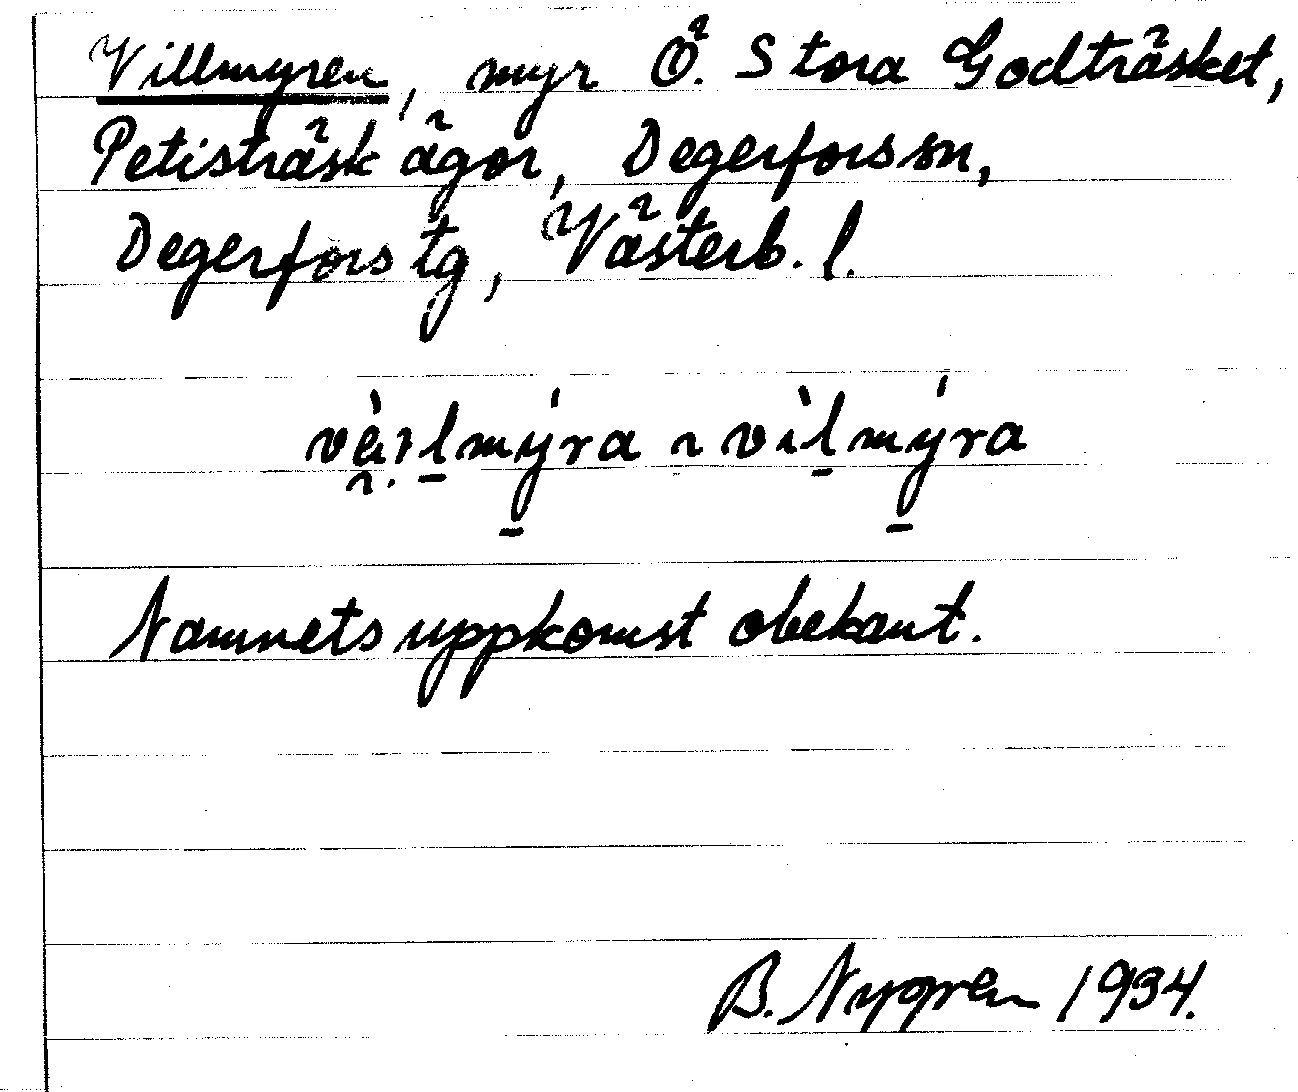 Villmyren, myr Ö. Stora Godträsket,
Petisträsk ägor, Degerforssn,
Degerfors tg, Västerb. l.
vìlmýra
Namnets uppkomst obekant.
B. Nygren 1934.